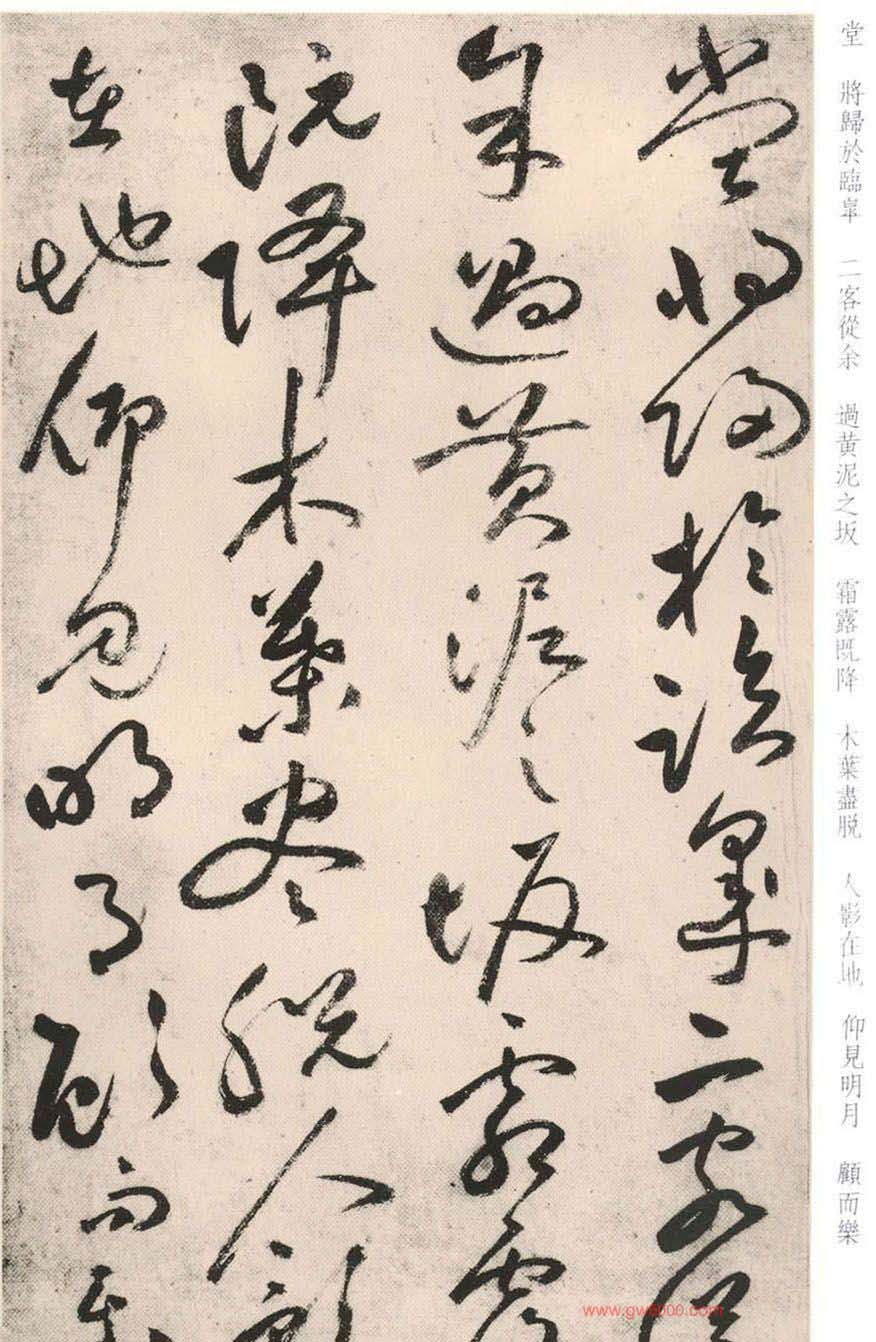 堂 將歸於臨皋 二客從余 過黄泥之坂 霜露既降 木葉盡脱 人影在地 仰見明月 顧而樂
堂將歸於臨皋二客從
余過黄泥之坂霜露
既降木葉盡脱人影
在地仰見明月顧而樂
www.gw5000.com